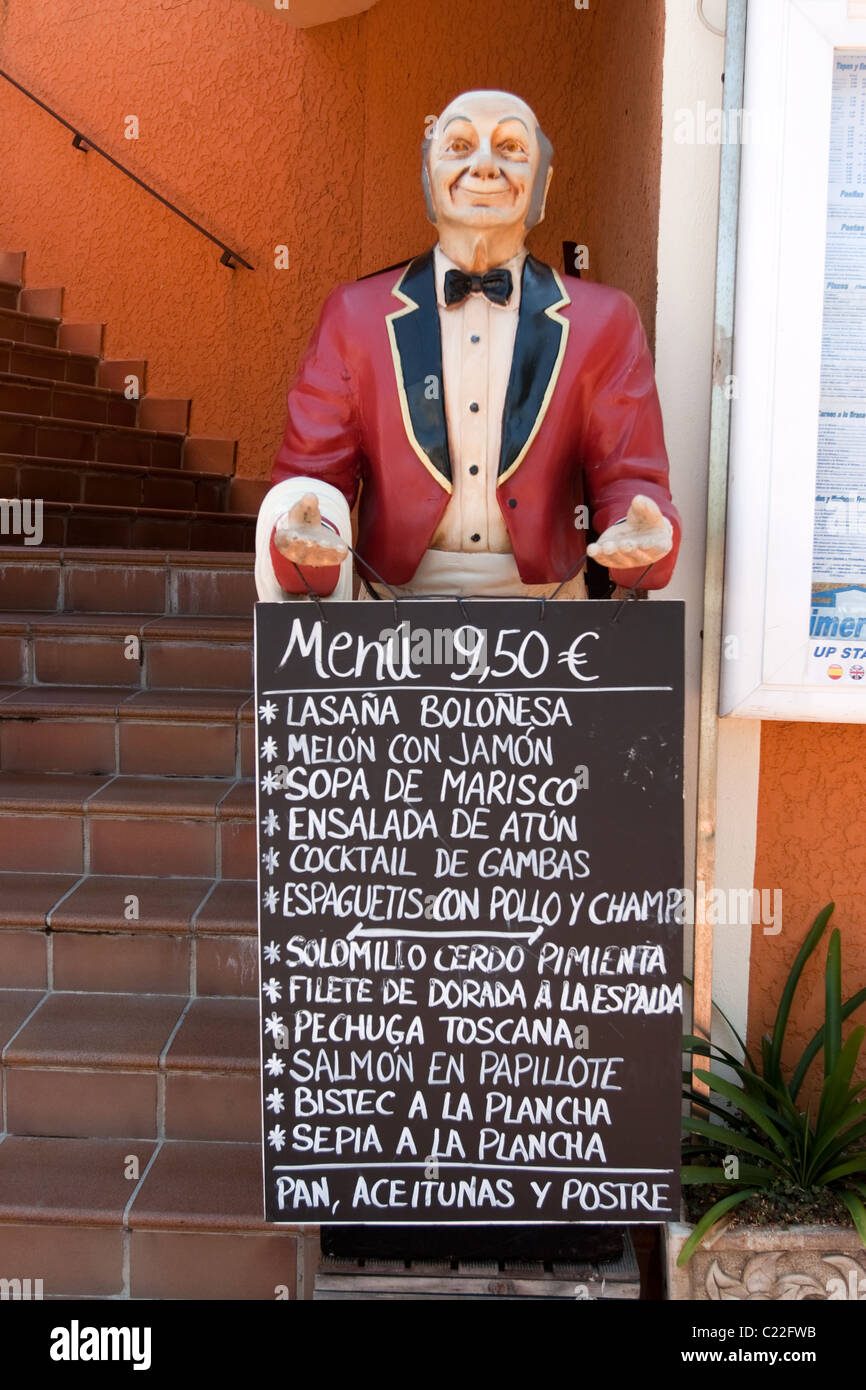 Menú 9,50 €
* LASAÑA BOLOÑESA
* MELÓN CON JAMÓN
* SOPA DE MARISCO
* ENSALADA DE ATÚN
* COCKTAIL DE GAMBAS
* ESPAGUETIS CON POLLO Y CHAMP
* SOLOMILLO CERDO PIMIENTA
* FILETE DE DORADA A LA ESPALDA
* PECHUGA TOSCANA
* SALMÓN EN PAPILLOTE
* BISTEC A LA PLANCHA
* SEPIA A LA PLANCHA
PAN, ACEITUNAS Y POSTRE
Tapas y
Pizzas
UP STA
alamy
Image ID: C22FWB
www.alamy.com